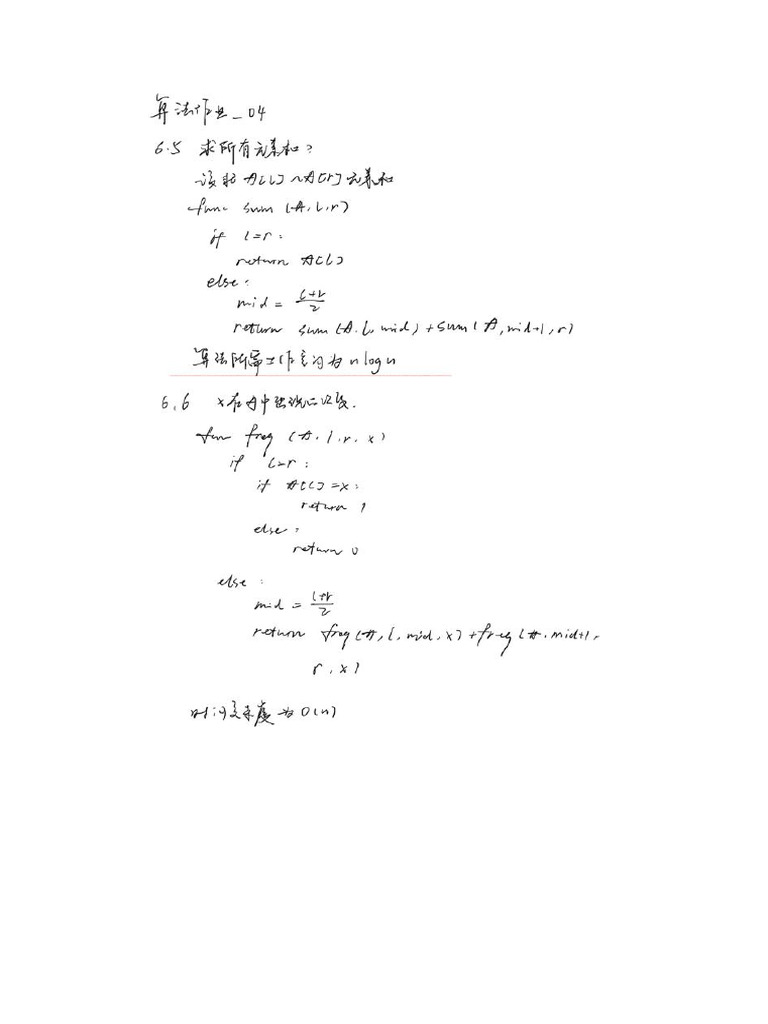 算法作业_04
6.5 求所有元素和?
设求 A[l]~A[r] 元素和
func sum (A, l, r)
if l=r:
return A[l]
else:
mid = (l+r)/2
return sum(A, l, mid) + sum(A, mid+1, r)
算法所需工作空间为 nlogn
6.6 x在A中出现的次数.
fun freq (A, l, r, x)
if l=r:
if A[l]=x:
return 1
else:
return 0
else:
mid = (l+r)/2
return freq(A, l, mid, x) + freq(A, mid+1,
r, x)
时间复杂度为O(n)